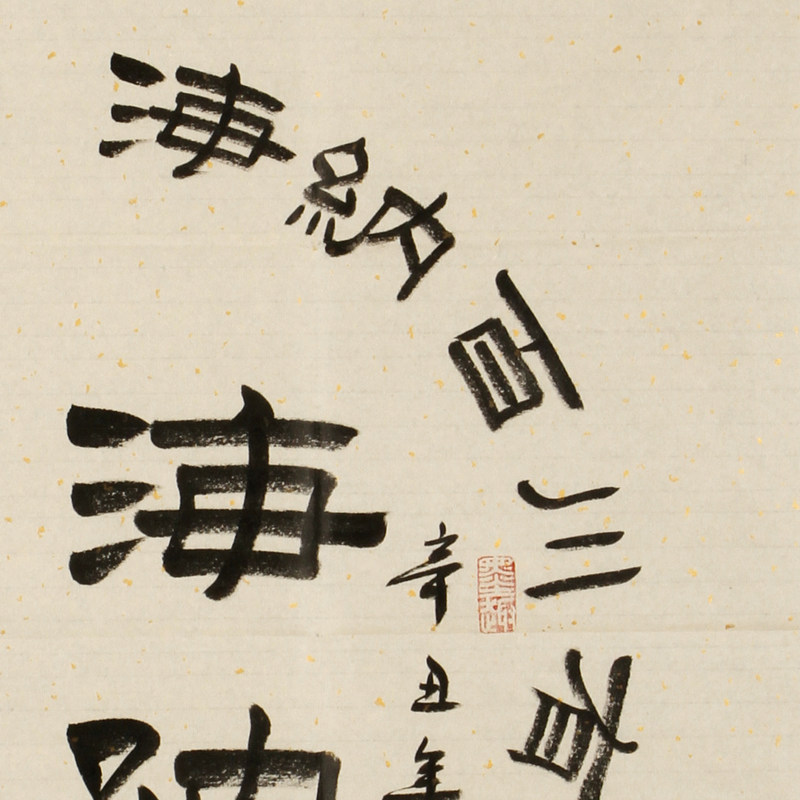 海納百川有
海
辛丑年